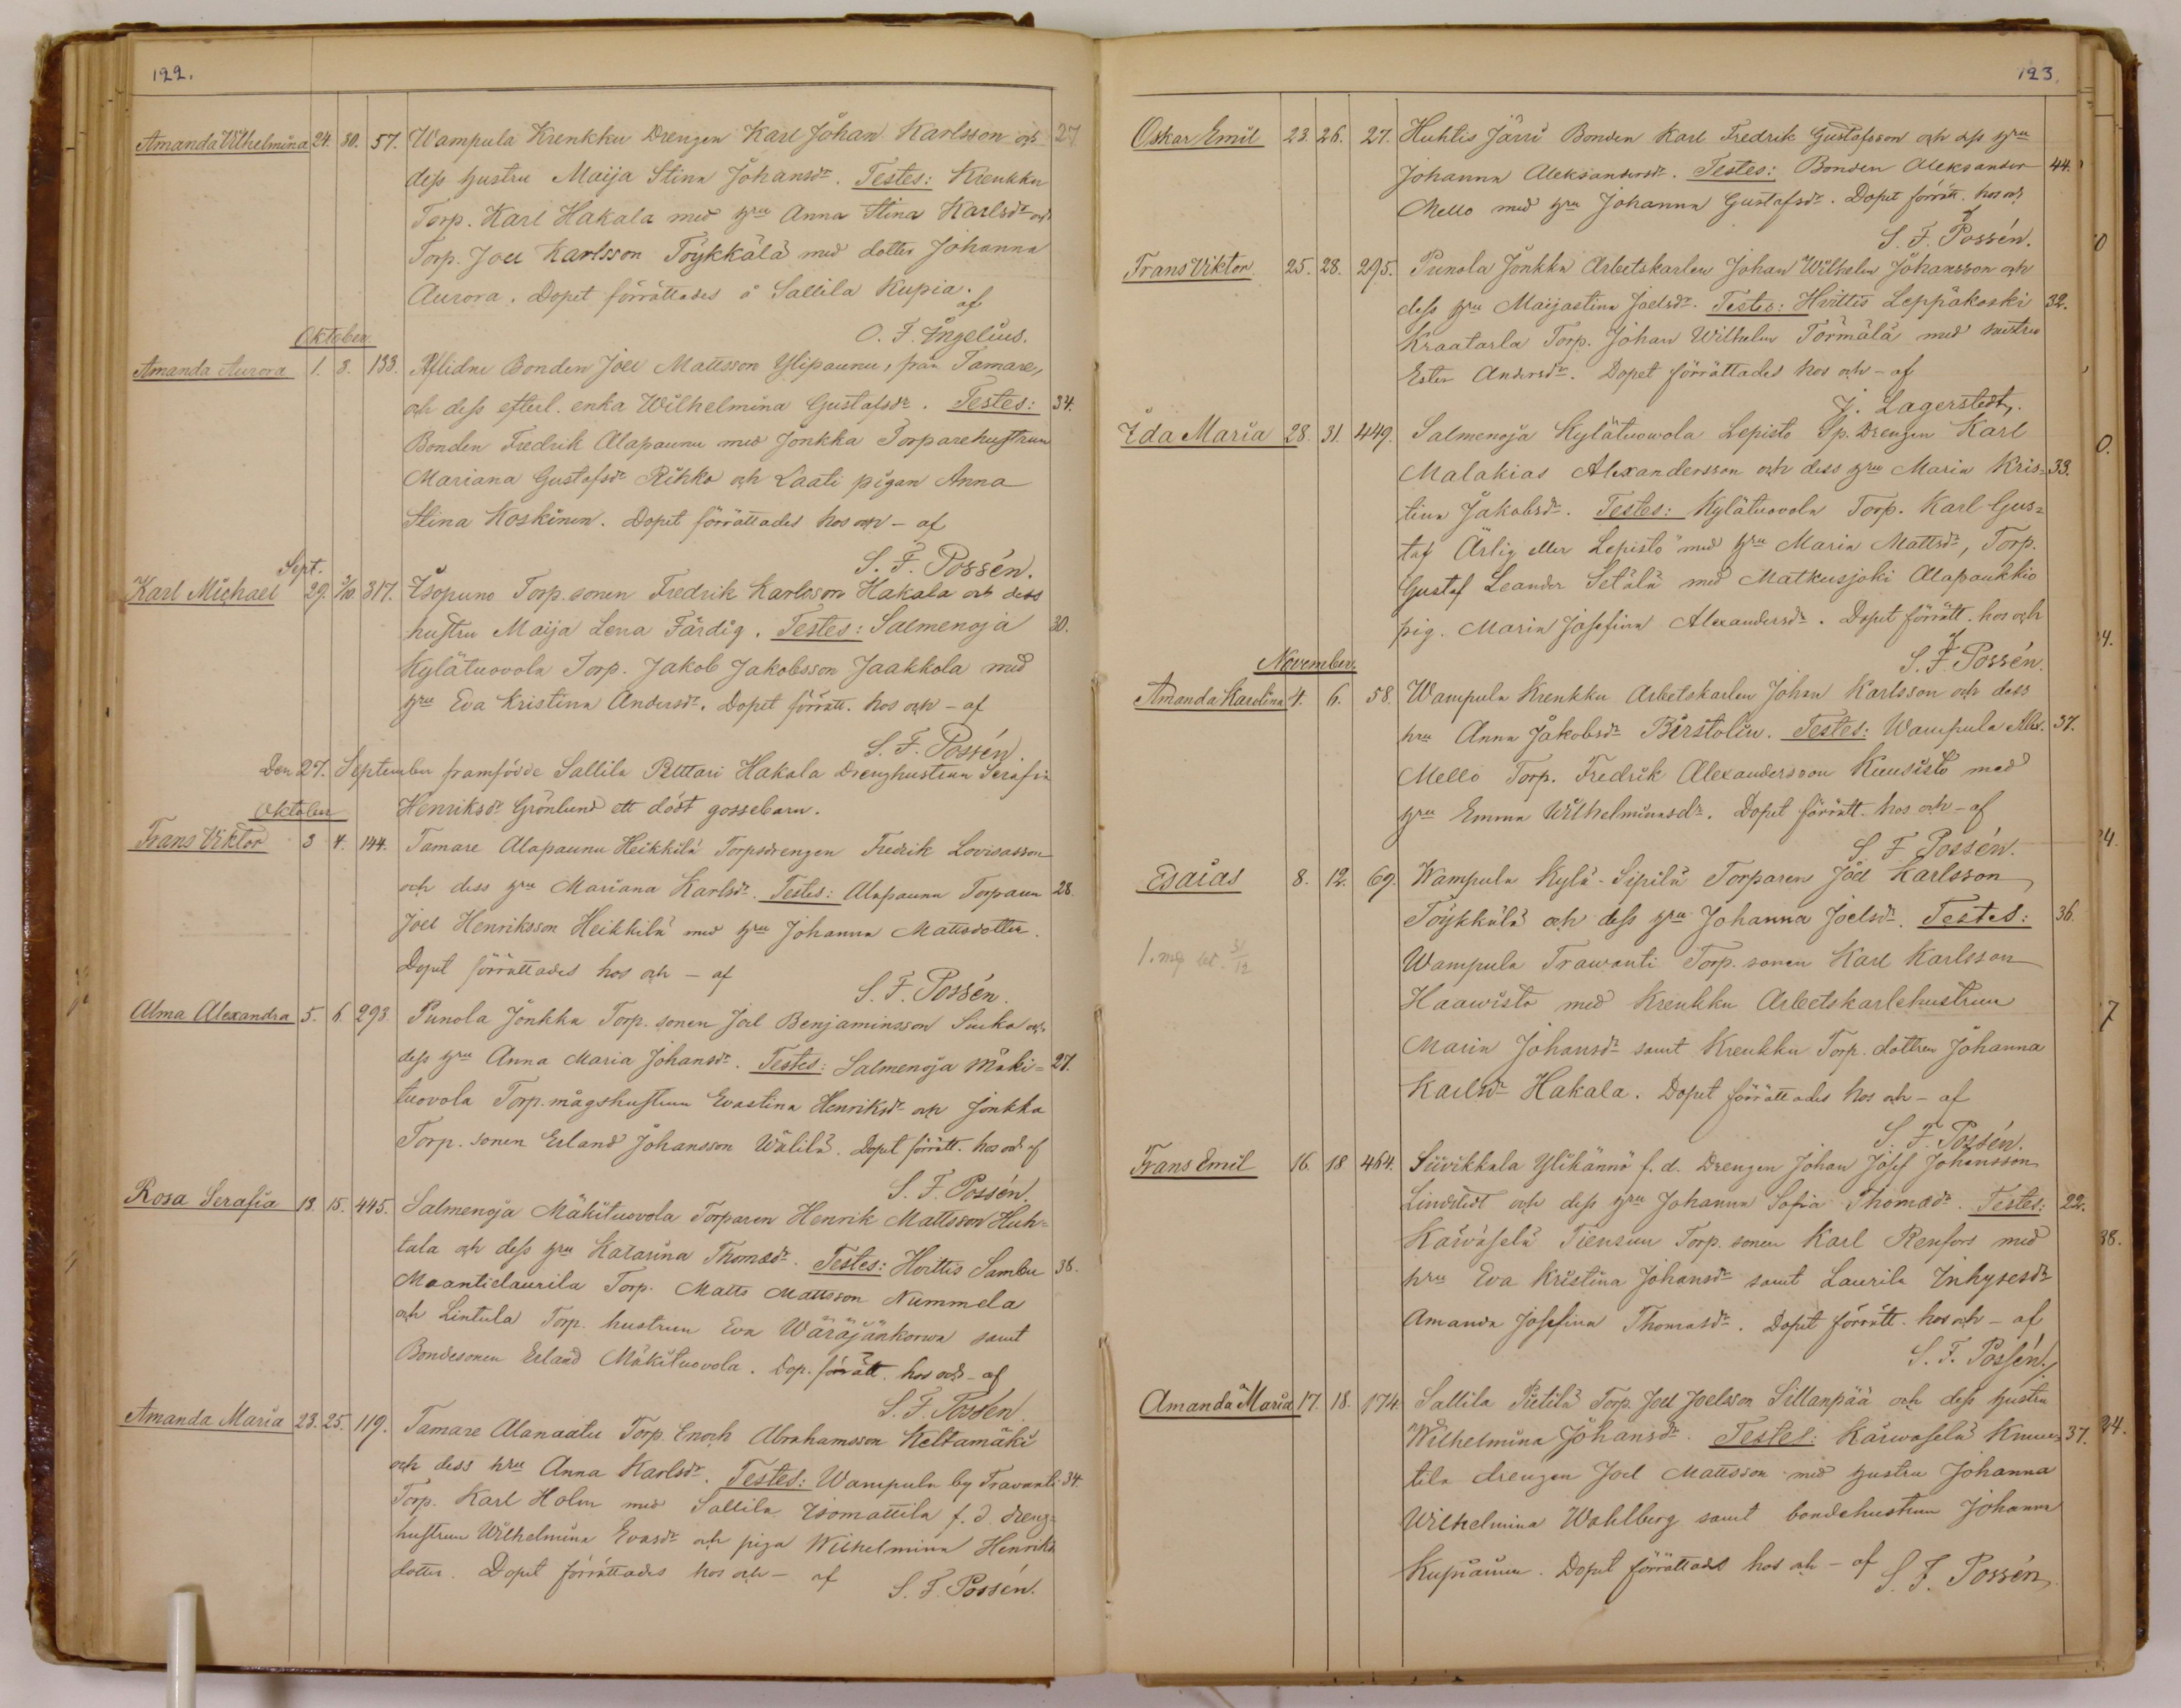 122.
Amanda Wilhelmina 24. 30. 57. Wampula Krenkku Drengen Karl Johan Karlsson och 27
dess hustru Maija Stina Johansdr. Testes: Krenkku
Torp. Karl Hakala med hru Anna Stina Karlsdr och
Torp. Joel Karlsson Töykkälä med dotter Johanna
Aurora. Dopet förrättades å Sallila Kupia. af
O. F. Ingelius.
Oktober.
Amanda Aurora 1. 3. 133. Aflidne Bonden Joel Mattsson Ylipaunu, från Tamare,
och dess efterl. enka Wilhelmina Gustafsdr. Testes: 34.
Bonden Fredrik Alapaunu med Jonkka Torparehustrun
Mariana Gustafsdr Rikko och Laati pigan Anna
Stina Koskinen. Dopet förrättades hos och – af
S. F. Possén.
Sept.
Karl Michael 29. 3/10 317. Isopuno Torp. sonen Fredrik Karlsson Hakala och dess
hustru Maija Lena Färdig. Testes: Salmenoja 30.
Kylätuovola Torp. Jakob Jakobsson Jaakkola med
hru Eva Kristina Andersdr. Dopet förrätt. hos och – af
S. F. Possén.
Den 27. September framfödde Sallila Pelttari Hakala Drenghustrun Serafia
Henriksdr Grönlund ett dödt gossebarn.
Oktober
Frans Viktor 3 4. 144. Tamare Alapaunu Heikkilä Torpsdrengen Fredrik Lovisasson
och dess hru Mariana Karlsdr. Testes: Alapaunu Torparen 28.
Joel Henriksson Heikkilä med hru Johanna Mattsdotter.
Dopet förrättades hos och – af
S. F. Possén.
Alma Alexandra 5. 6. 293. Punola Jonkka Torp. sonen Joel Benjaminsson Suko och
dess hru Anna Maria Johansdr. Testes: Salmenoja Mäki= 27.
tuovola Torp. mågshustrun Evastina Henriksdr och Jonkka
Torp. sonen Erland Johansson Wälilä. Dopet förrätt. hos och af
S. F. Possén.
Rosa Serafia 13. 15. 445. Salmenoja Mäkituovola Torparen Henrik Mattsson Huh=
tala och dess hru Katarina Thomasdr. Testes: Hvittis Sambu 38.
Maantielaurila Torp. Matts Mattsson Nummela
och Lintula Torp. hustrun Eva Wäräjänkorwa samt
Bondesonen Erland Mäkituovola. Dop. förrätt. hos och – af
S. F. Possén.
Amanda Maria 23. 25. 119. Tamare Alanaatu Torp. Enoch Abrahamsson Keltamäki
och dess hru Anna Karlsdr. Testes: Wampula by Trawanti 34.
Torp. Karl Holm med Sallila Isomattila f. d. dreng=
hustrun Wilhelmina Evasdr och piga Wilhelmina Henriks
dotter. Dopet förrättades hos och – af
S. F. Possén.
123.
Oskar Emil 23. 26. 27. Huhtis Järri Bonden Karl Fredrik Gustafsson och dess hru
Johanna Aleksandersdr. Testes: Bonden Aleksander 44.
Mello med hru Johanna Gustafsdr. Dopet förrätt. hos och
af
S. F. Possén.
Frans Viktor 25. 28. 295. Punola Jonkka Arbetskarlen Johan Wilhelm Johansson och
dess hru Maijastina Joelsdr. Testes: Hvittis Leppäkoski 32.
Kraatarla Torp. Johan Wilhelm Törmälä med hustru
Ester Andersdr. Dopet förrättades hos och – af
J. Lagerstedt.
Ida Maria 28. 31. 449. Salmenoja Kylätuowola Lepisto Sp. Drengen Karl
Malakias Alexandersson och dess hru Maria Kris= 33.
tina Jakobsdr. Testes: Kylätuovola Torp. Karl Gus=
taf Ärlig eller Lepistö med hru Maria Mattsdr, Torp.
Gustaf Leander Setälä med Matkusjoki Alapaukkio
pig. Maria Josefina Alexandersdr. Dopet förrätt. hos och
af
S. F. Possén.
November.
Amanda Karolina 4. 6. 58. Wampula Krenkku Arbetskarlen Johan Karlsson och dess
hru Anna Jakobsdr Birstolin. Testes: Wampula 37.
Mello Torp. Fredrik Alexandersson Kuusisto med
hru Emma Wilhelminasdr. Dopet förrätt. hos och – af
S. F. Possén.
Esaias 8. 12. 69. Wampula Kylä-Sipilä Torparen Joel Karlsson
Töykkälä och dess hru Johanna Joelsdr. Testes: 36.
Wampula Trawanti Torp. sonen Karl Karlsson
Haawisto med Krenkku Arbetskarlehustrun
Maria Johansdr samt Krenkku Torp. dottren Johanna
Karlsdr Hakala. Dopet förrättades hos och – af
S. F. Possén.
Frans Emil 16. 18. 464. Suvikkala Ylihännö f. d. Drengen Johan Josef Johansson
Lindstedt och dess hru Johanna Sofia Thomasdr. Testes: 22.
Karwaselä Tiensuu Torp. sonen Karl Renfors med
hru Eva Kristina Johansdr samt Laurila Inhysesdr
Amanda Josefina Thomasdr. Dopet förrätt. hos och – af
S. F. Possén.
Amanda Maria 17. 18. 174. Sallila Pietilä Torp. Joel Joelsson Sillanpää och dess hustru
Wilhelmina Johansdr. Testes: Karwaselä Knuu= 37.
tila drengen Joel Mattsson med hustru Johanna
Wilhelmina Wahlberg samt bondehustrun Johanna
Kupiainen. Dopet förrättades hos och – af
S. F. Possén.